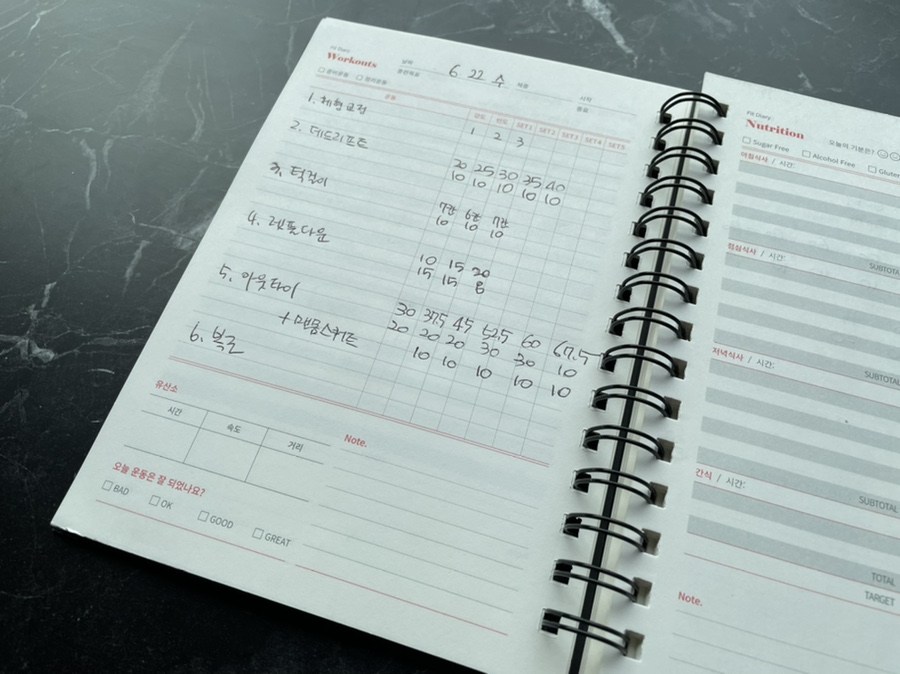 Fit Diary
Workouts
날짜 6. 22 수 체중 시작
훈련목표 종료
운동 강도 빈도 SET1 SET2 SET3 SET4 SET5
1. 체형교정
1 2 3
2. 데드리프트
20 25 30 35 40
10 10 10 10 10
3. 턱걸이
7칸 6칸 7칸
10 10 10
4. 렛풀다운
10 15 20
15 15 8
5. 아웃타이
30 37.5 45 52.5 60 67.5
20 20 20 30 30 10
+ 맨몸스쿼트
10 10 10 10 10
6. 복근
유산소
시간 속도 거리
Note.
오늘 운동은 잘 되었나요?
BAD OK GOOD GREAT
Fit Diary
Nutrition
오늘의 기분은?
Sugar Free Alcohol Free Gluten
아침식사 / 시간:
SUBTOTAL
점심식사 / 시간:
SUBTOTAL
저녁식사 / 시간:
SUBTOTAL
간식 / 시간:
SUBTOTAL
TOTAL
TARGET
Note.